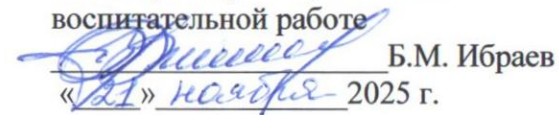 воспитательной работе
Б.М. Ибраев
«21» ноября 2025 г.